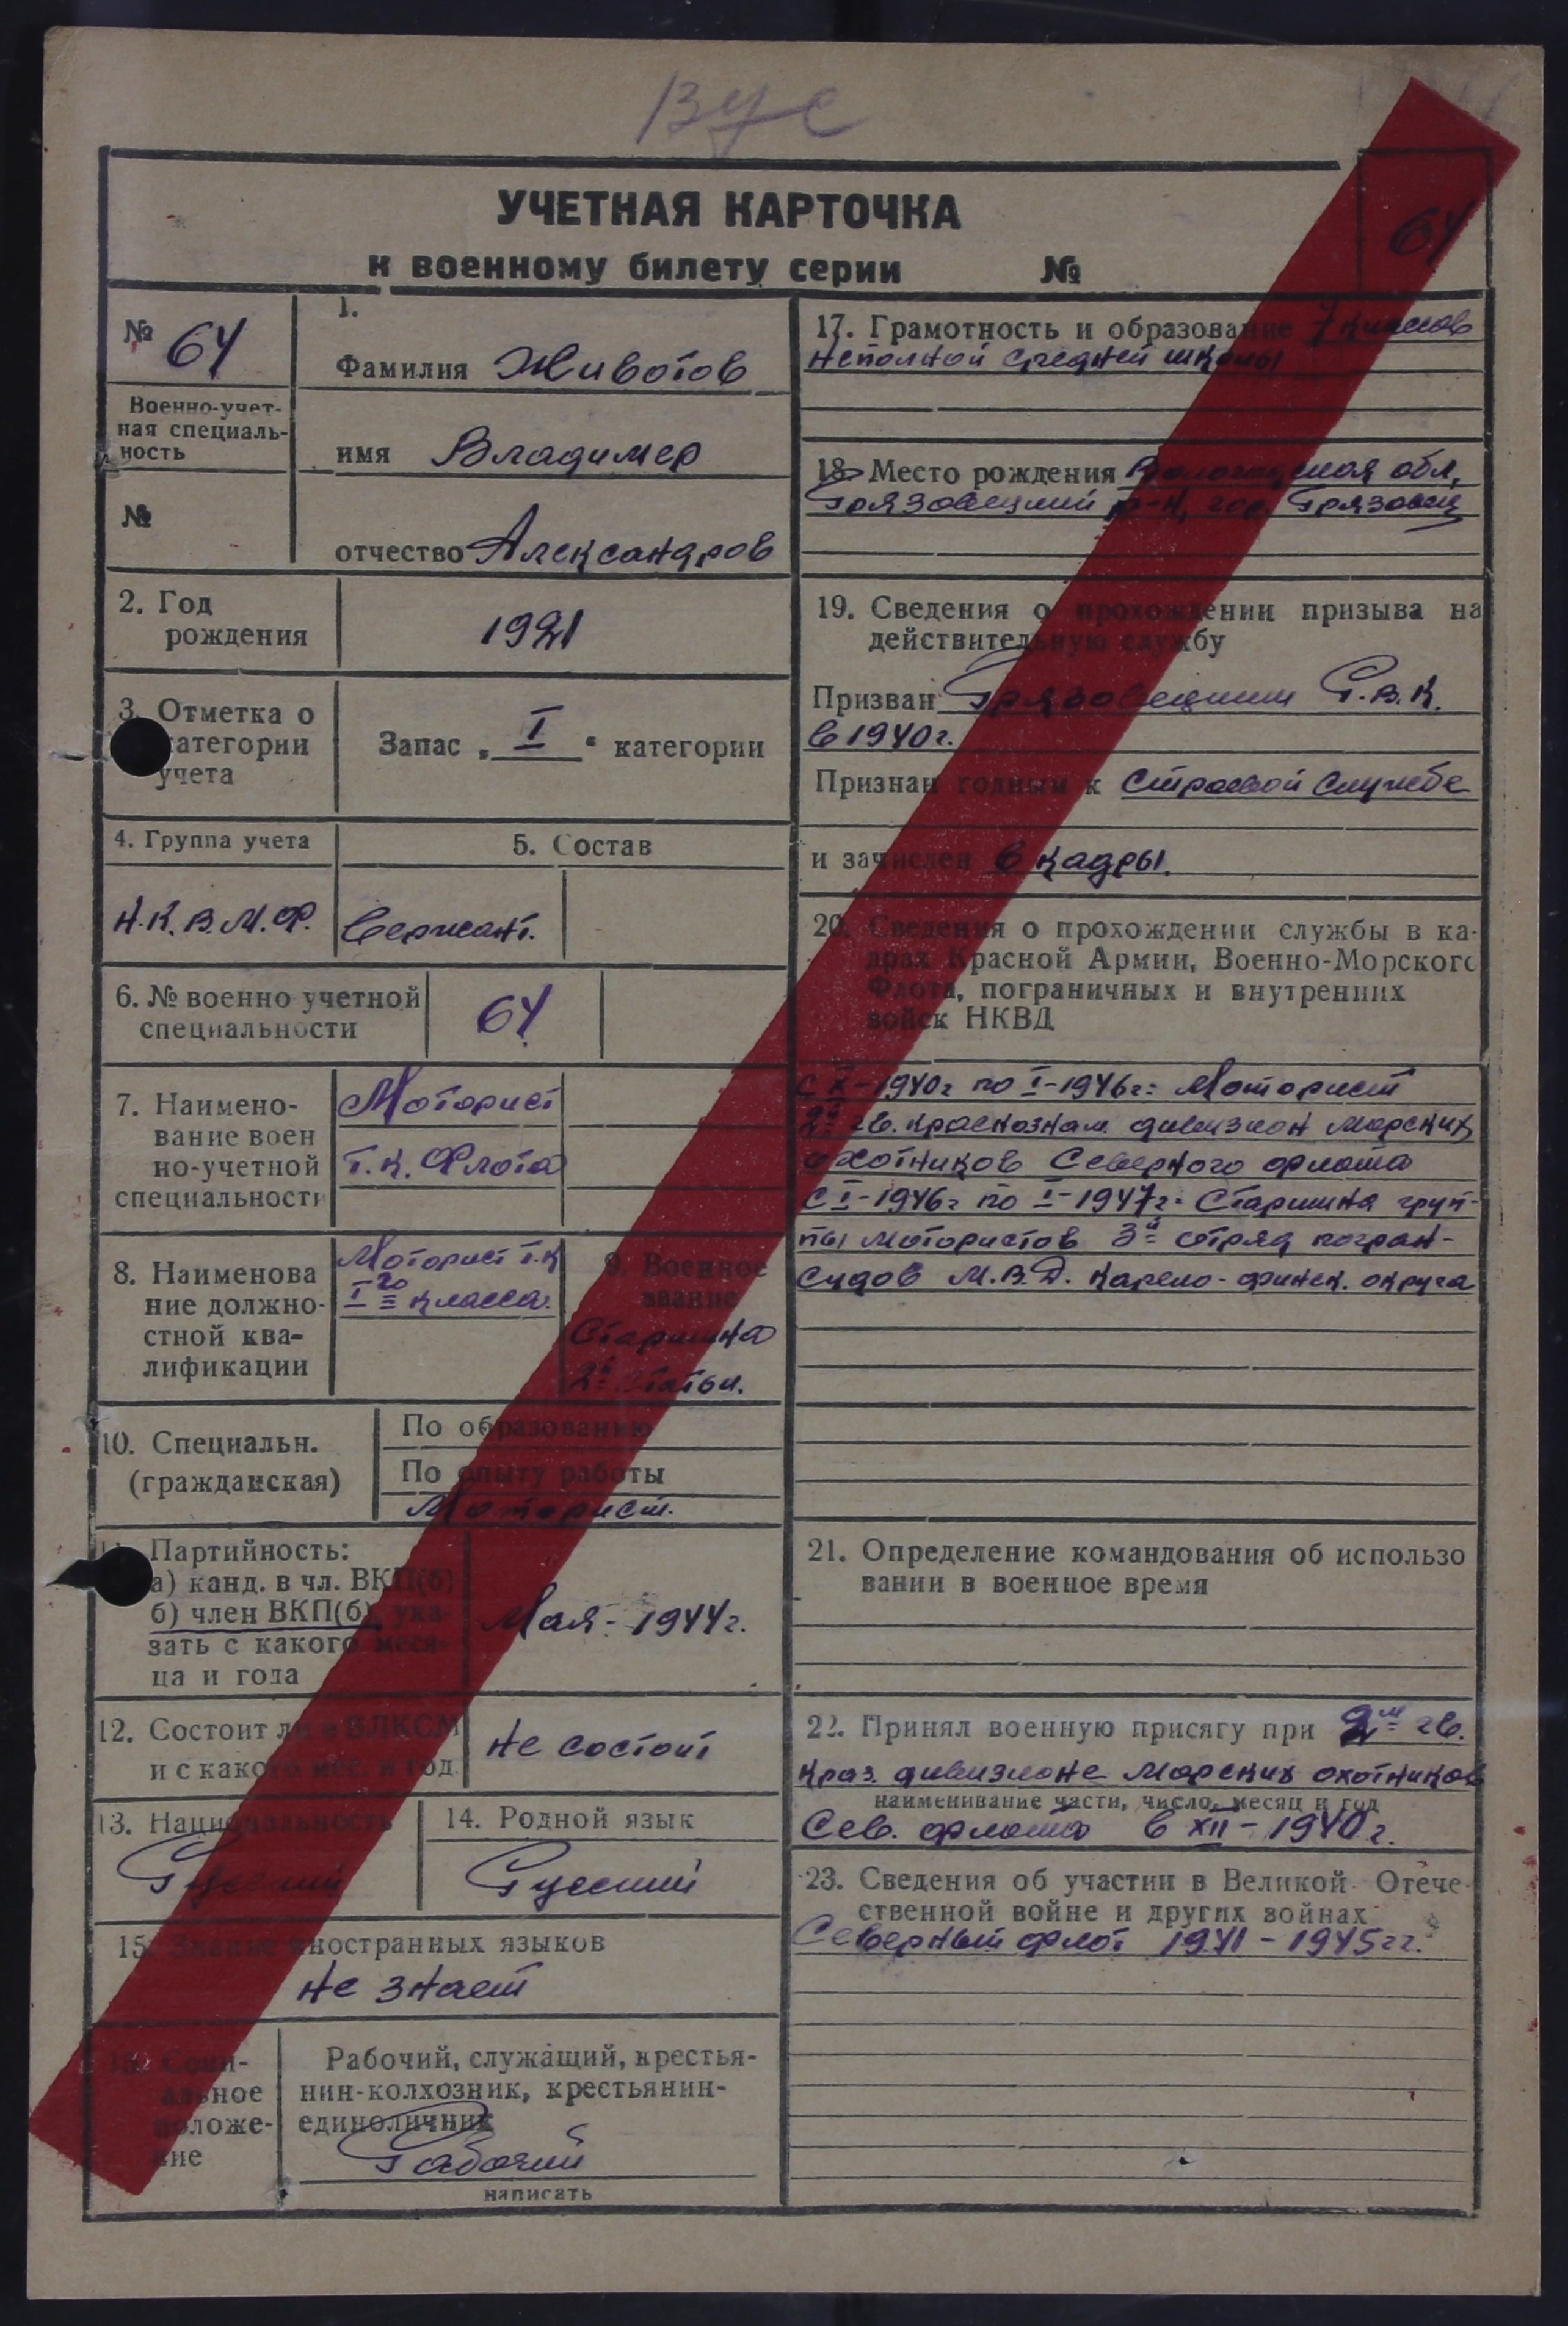 ВУС
УЧЕТНАЯ КАРТОЧКА
к военному билету серии №
64
№ 64
Военно-учет-
ная специаль-
ность
№
1.
Фамилия Животов
имя Владимер
отчество Александров
2. Год
рождения
1921
3. Отметка о
категории
учета
Запас „ I “ категории
4. Группа учета
5. Состав
Н.К.В.М.Ф.
Сержант.
6. № военно учетной
специальности
64
7. Наимено-
вание воен
но-учетной
специальности
Моторист
Т.К. Флота
8. Наименова
ние должно-
стной ква-
лификации
Моторист Т.К
I го класса.
9. Военное
звание
Старшина
2й статьи.
10. Специальн.
(гражданская)
По образованию
По опыту работы
Моторист.
11. Партийность:
а) канд. в чл. ВКП(б)
б) член ВКП(б), ука-
зать с какого меся-
ца и года
Мая - 1944г.
12. Состоит ли в ВЛКСМ
и с какого мес. и год.
Не состоит
13. Национальность
Русский
14. Родной язык
Русский
15. Знание иностранных языков
Не знает
16. Соци-
альное
положе-
ние
Рабочий, служащий, крестья-
нин-колхозник, крестьянин-
единоличник
Рабочий
написать
17. Грамотность и образование 7 классов
неполной средней школы
18. Место рождения Вологодская обл,
Грязовецкий р-н, гор. Грязовец
19. Сведения о прохождении призыва на
действительную службу
Призван Грязовецким Р.В.К.
в 1940г.
Признан годным к Строевой Службе
и зачислен в кадры.
20. Сведения о прохождении службы в ка-
драх Красной Армии, Военно-Морского
Флота, пограничных и внутренних
войск НКВД
1940г по I-1946г: Моторист
2й гв. краснознам. дивизион Морских
охотников Северного флота
С I-1946г по I-1947г. Старшина груп-
пы мотористов 3й отряд погран-
судов М.В.Д. Карело-финск. округа
21. Определение командования об использо
вании в военное время
22. Принял военную присягу при 2м гв.
Краз. дивизионе Морских охотников
наименивание части, число, месяц и год
Сев. флота в XII-1940г.
23. Сведения об участии в Великой Отече-
ственной войне и других войнах
Северный флот 1941-1945гг.